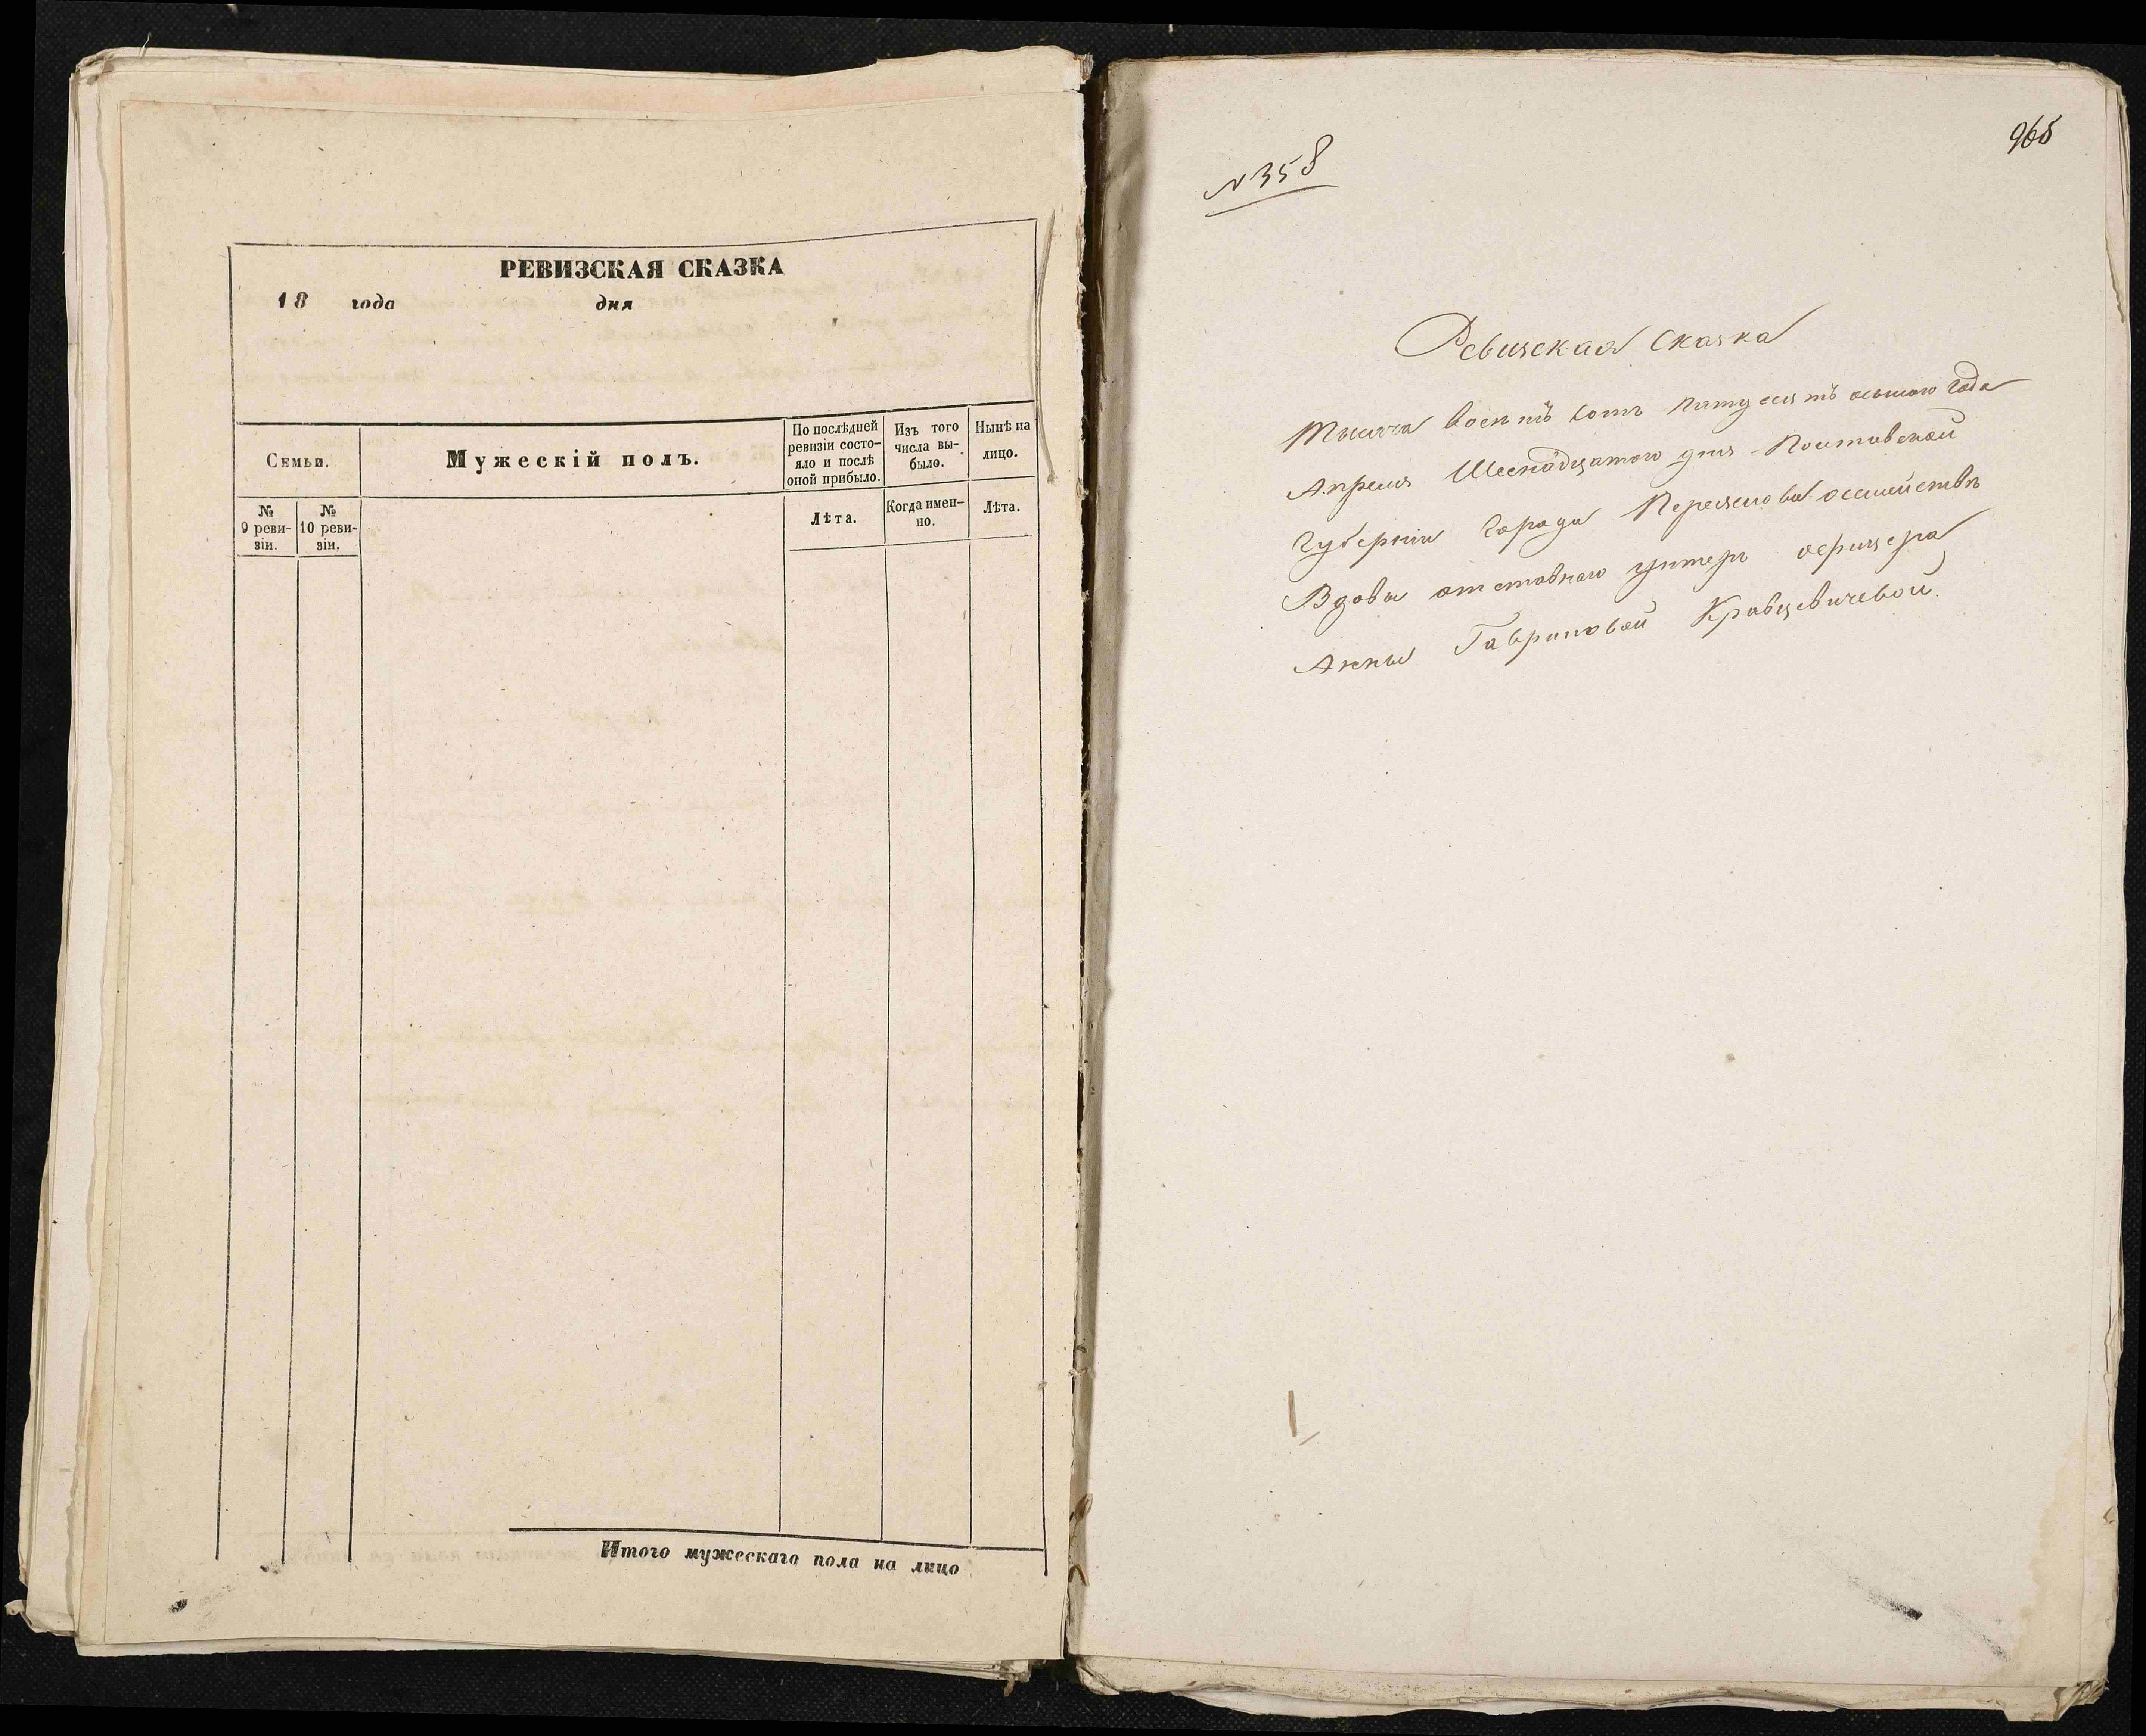 РЕВИЗСКАЯ СКАЗКА
18 года дня
Семьи.
Мужескій полъ.
По послѣдней
ревизіи состо-
яло и послѣ
оной прибыло.
Изъ того
числа вы-
было.
Нынѣ на
лицо.
№
9 реви-
зіи.
№
10 реви-
зіи.
Лѣта.
Когда имен-
но.
Лѣта.
Итого мужескаго пола на лицо
965
№358
Ревизская Сказка
Тысяча восемъ сотъ пятдесятъ осьмаго года
Апреля Шеснадцатого дня Полтавской
Губерніи города Переяслова осемействѣ
Вдовы отставнаго унтеръ офицера
Анны Гавриловой Кравцевичевой.